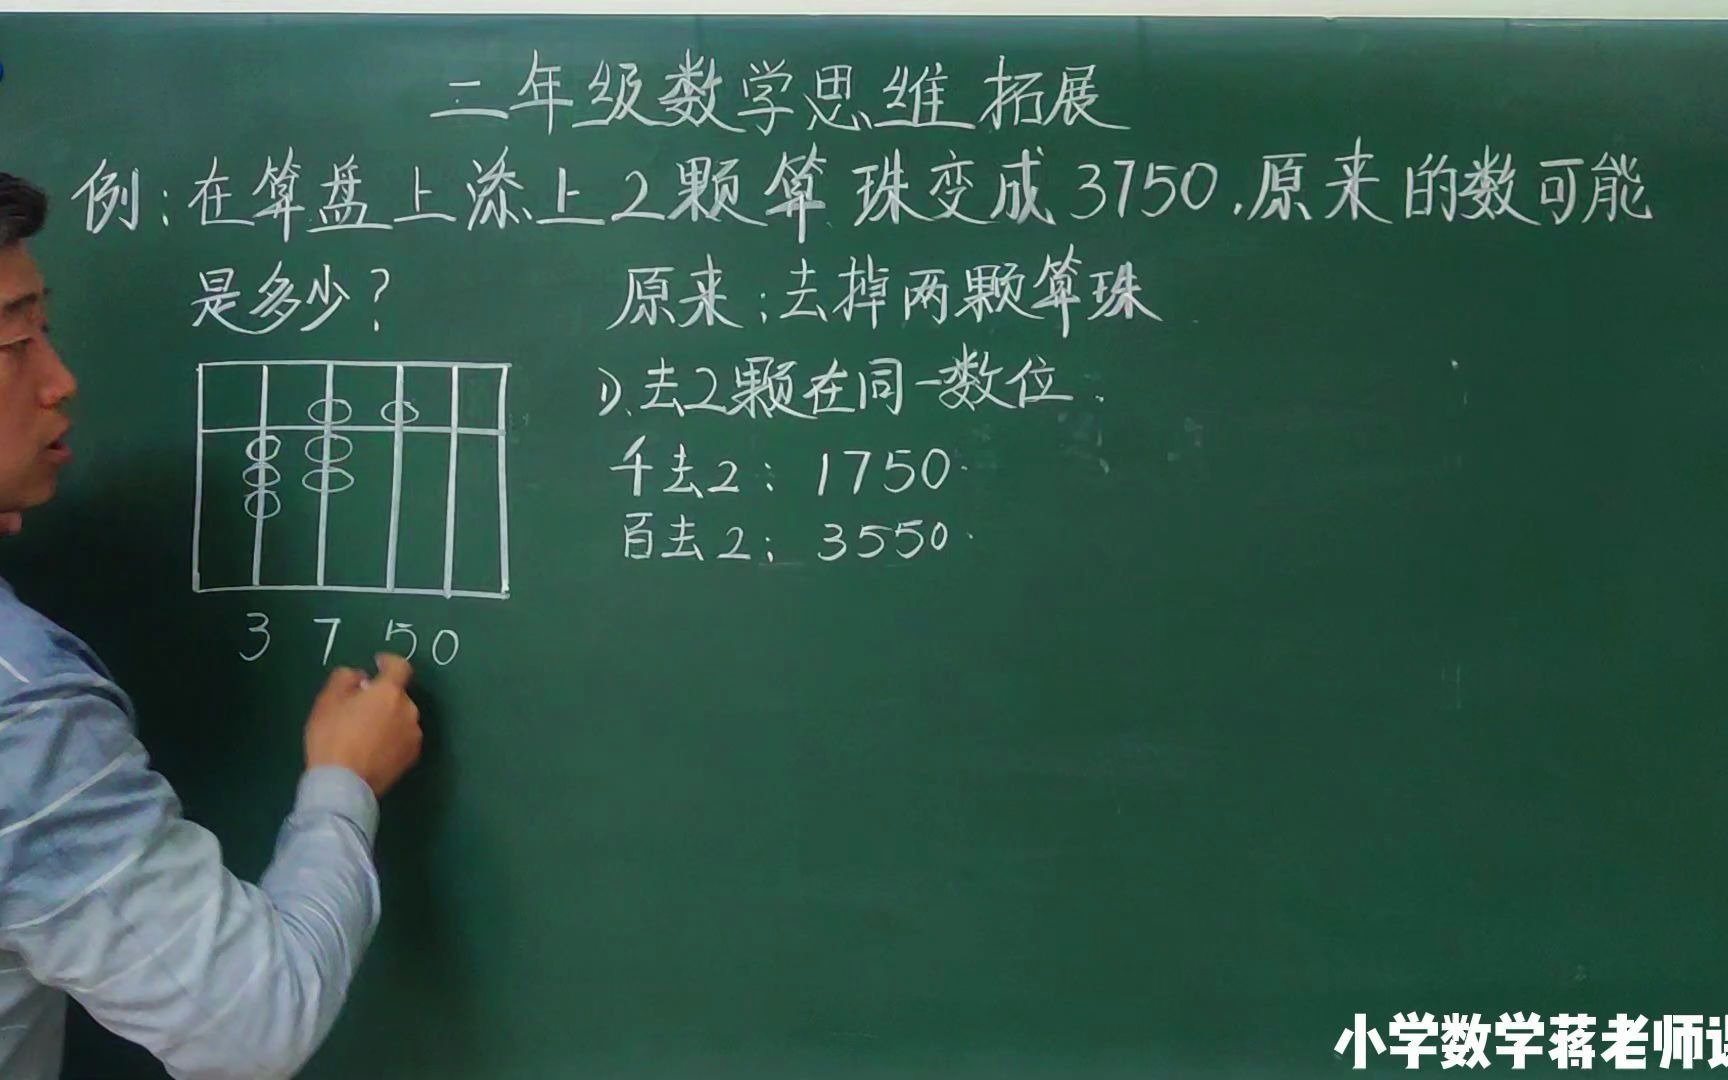 二年级数学思维拓展
例:在算盘上添上2颗算珠变成3750.原来的数可能
是多少?
原来:去掉两颗算珠
1).去2颗在同一数位.
千去2: 1750.
百去2: 3550.
3 7 5 0
小学数学蒋老师课